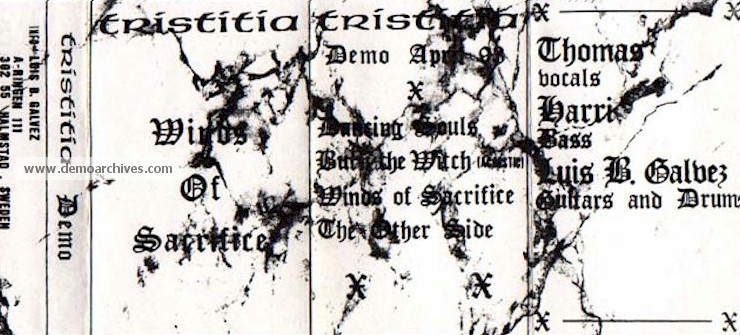 INFO: LUIS B. GALVEZ
A-RINGEN 111
302 55 HALMSTAD, SWEDEN
tristitia Demo
tristitia
Winds
Of
Sacrifice
tristitia
Demo April 93
X
Dancing Souls
Burn the Witch
Winds of Sacrifice
The Other Side
X X
X X
Thomas
vocals
Harri
Bass
Luis B. Galvez
Guitars and Drums
X X
www.demoarchives.com